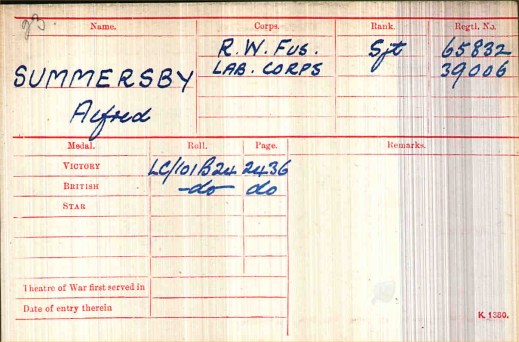 23
Name. Corps. Rank. Regtl. No.
R. W. FUS. Sjt 65832
SUMMERSBY LAB. CORPS 39006
Alfred
Medal. Roll. Page. Remarks.
VICTORY LC/101B24 2436
BRITISH -do- do
STAR
Theatre of War first served in
Date of entry therein
K 1380.